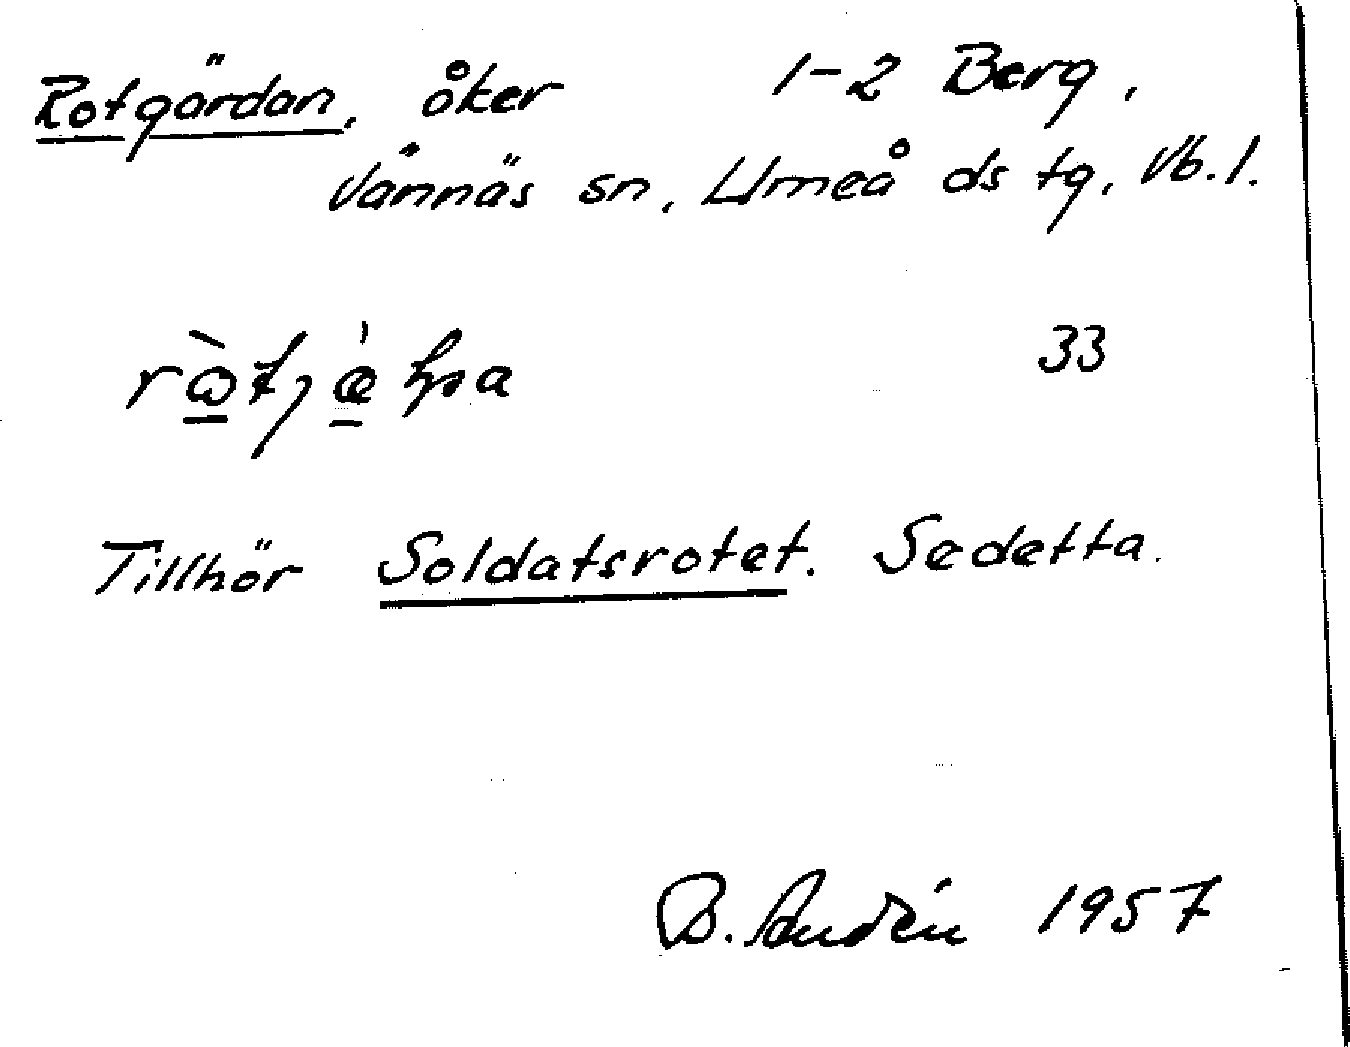 Rotgärdan, åker 1-2 Berg,
Vännäs sn, Umeå ds tg, Vb. l.
33
Tillhör Soldatsrotet. Sedetta.
B. Audén 1957